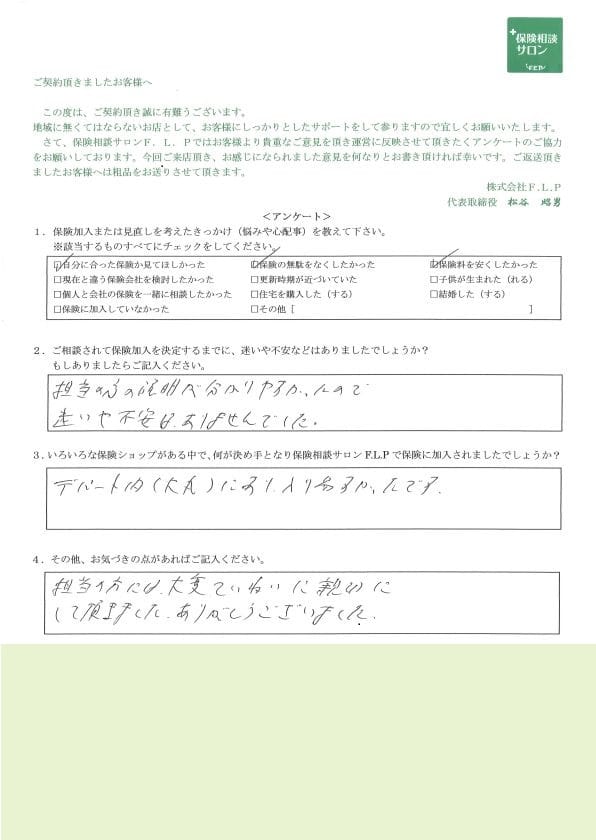 +保険相談
サロン
F.L.P
ご契約頂きましたお客様へ
この度は、ご契約頂き誠に有難うございます。
地域に無くてはならないお店として、お客様にしっかりとしたサポートをして参りますので宜しくお願いいたします。
さて、保険相談サロンF.L.Pではお客様より貴重なご意見を頂き運営に反映させて頂きたくアンケートのご協力
をお願いしております。今回ご来店頂き、お感じになられました意見を何なりとお書き頂ければ幸いです。ご返送頂き
ましたお客様へは粗品をお送りさせて頂きます。
株式会社F.L.P
代表取締役 松谷 昭男
＜アンケート＞
1．保険加入または見直しを考えたきっかけ（悩みや心配事）を教えて下さい。
※該当するものすべてにチェックをしてください。
☑自分に合った保険か見てほしかった ☑保険の無駄をなくしたかった ☑保険料を安くしたかった
□現在と違う保険会社を検討したかった □更新時期が近づいていた □子供が生まれた（れる）
□個人と会社の保険を一緒に相談したかった □住宅を購入した（する） □結婚した（する）
□保険に加入していなかった □その他［ ］
2．ご相談されて保険加入を決定するまでに、迷いや不安などはありましたでしょうか？
もしありましたらご記入ください。
担当の方の説明が分かりやすかったので
迷いや不安は、ありませんでした。
3．いろいろな保険ショップがある中で、何が決め手となり保険相談サロンF.L.Pで保険に加入されましたでしょうか？
デパート内(大丸)にあり、入りやすかったです。
4．その他、お気づきの点があればご記入ください。
担当の方には、大変ていねいに親切に
して頂きました。ありがとうございました。